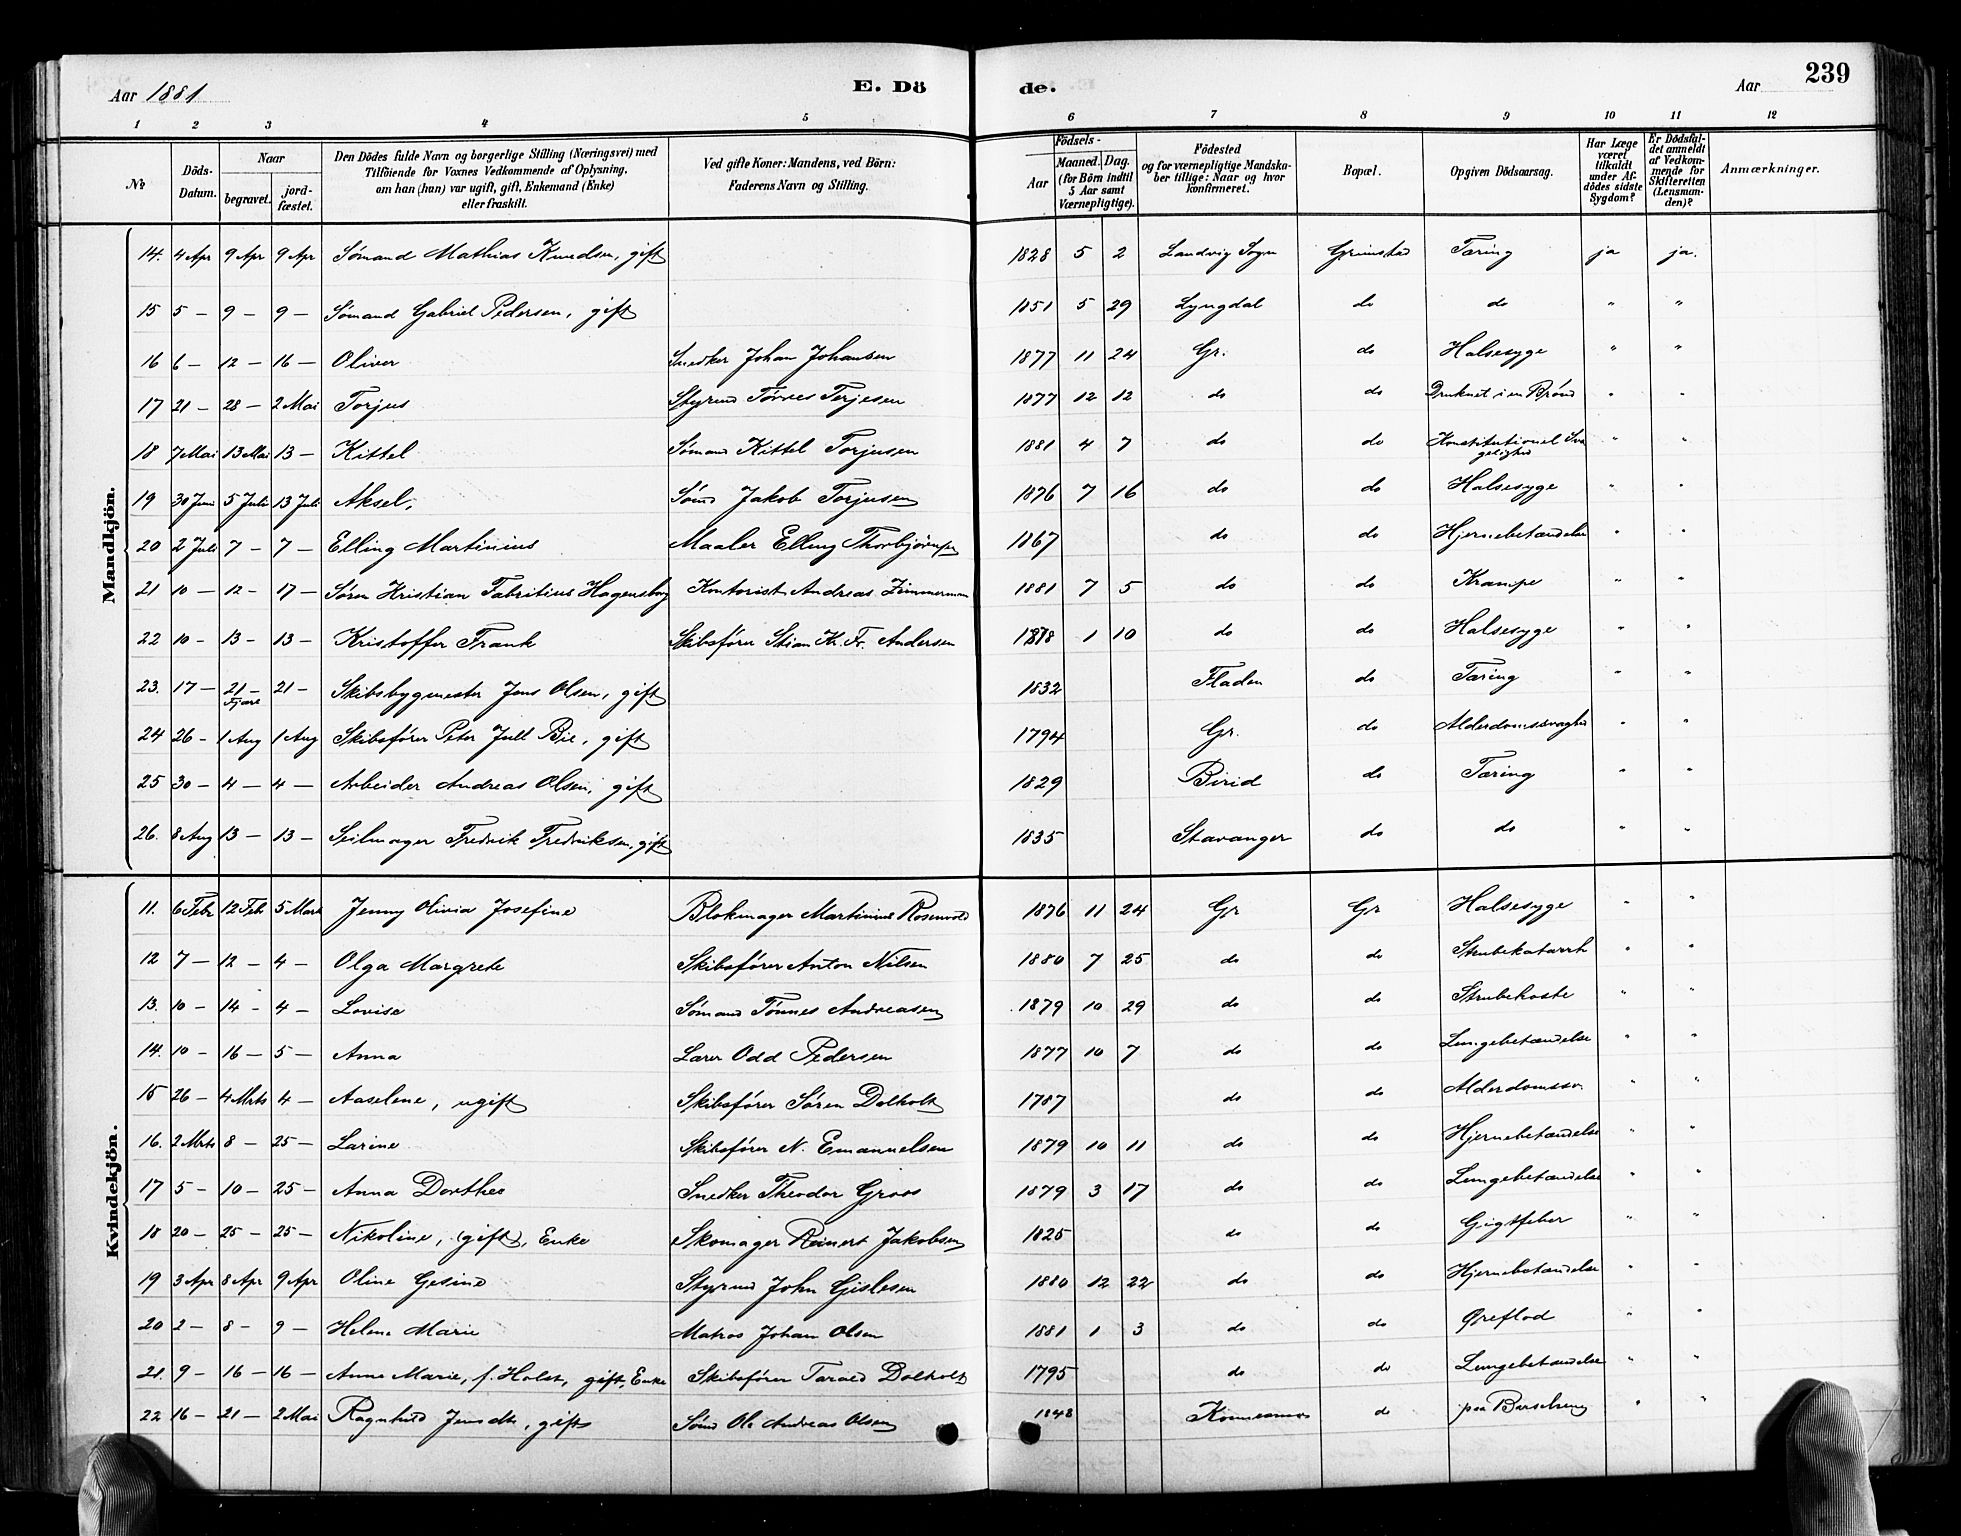 Aar 1881 E. Dö de. Aar 239
1 2 3 4 5 6 7 8 9 10 11 12
№ Döds-Datum. Naar begravet. jordfæstet. Den Dödes fulde Navn og borgerlige Stilling (Næringsvei) med Tilföiende for Voxnes Vedkommende af Oplysning, om han (hun) var ugift, gift, Enkemand (Enke) eller fraskilt. Ved gifte Koner: Mandens, ved Börn: Faderens Navn og Stilling. Födsels- Aar Maaned. Dag. (for Börn indtil 5 Aar samt Værnepligtige). Födested og for værnepligtige Mandskaber tillige: Naar og hvor konfirmeret. Bopæl. Opgiven Dödsaarsag. Har Læge været tilkaldt under Afdödes sidste Sygdom? Er Dödsfaldet anmeldt af Vedkommende for Skifteretten (Lensmanden)? Anmærkninger.
Mandkjön.
14. 4 Apr 9 Apr 9 Apr Sømand Mathias Knudsen, gift 1828 5 2 Landvig Sogn Grimstad Tæring ja ja.
15 5 — 9 — 9 — Sømand Gabriel Pedersen, gift 1851 5 29 Lyngdal do do " "
16 6 — 12 — 16 — Oliver Snedker Johan Johansen 1877 11 24 Gr. do Halsesyge " "
17 21 — 28 — 2 Mai Torjus Styrmd Tønnes Terjesen 1877 12 12 do do Druknet i en Brønd " "
18 7 Mai 13 Mai 13 — Kittel Sømand Kittel Torjusen 1881 4 7 do do Konstitutionel Svagelighed " "
19 30 Juni 5 Juli 13 Juli Aksel, Sømd Jakob Torjusen 1876 7 16 do do Halsesyge " "
20 2 Juli 7 — 7 — Elling Martinius Maaler Elling Thorbjørnsen 1867 do do Hjernebetændelse " "
21 10 — 12 — 17 — Søren Kristian Fabritius Hagensborg Kontorist Andreas Zimmerman 1881 7 5 do do Krampe " "
22 10 — 13 — 13 — Kristoffer Frank Skibsfører Stian Kr. Fr. Andersen 1878 1 10 do do Halsesyge " "
23. 17 — 21 — Fjære 21 — Skibsbygmester Jens Olsen, gift 1832 Fladen do Tæring " "
24 26 — 1 Aug 1 Aug Skibsfører Peter Jull Bie, gift 1794 Gr. do Alderdomssvaghed " "
25 30 — 4 — 4 — Arbeider Andreas Olsen, gift 1829 Birid do Tæring " "
26. 8 Aug 13 — 13 — Seilmager Fredrik Fredriksen, gift 1835 Stavanger do do " "
Kvindekjön.
11. 6 Febr 12 Feb 5 Marts Jenny Olivia Josefine Blokmager Martinius Rosenvold 1876 11 24 Gr Gr Halsesyge " "
12 7 — 12 — 4 — Olga Margrete Skibsfører Anton Nilsen 1880 7 25 do do Strubekatarrh " "
13. 10 — 14 — 4 — Lovise Sømand Tønnes Andreasen 1879 10 29 do do Strubehoste " "
14. 10 — 16 — 5 — Anna Lærer Odd Pedersen 1877 10 7 do do Lungebetændelse " "
15 26 — 4 Mrts 4 — Aaselene, ugift Skibsfører Søren Dolholt 1787 do do Alderdomssv. " "
16. 2 Mrts 8 — 25 — Larine Skibsfører N. Emanuelsen 1879 10 11 do do Hjernebetændelse " "
17 5 — 10 — 25 — Anna Dorthea Snedker Theodor Groos 1879 3 17 do do Lungebetændelse " "
18 20 — 25 — 25 — Nikoline, (gift), Enke Skomager Reinert Jakobsen 1825 do do Gigtfeber " "
19 3 Apr 8 Apr 9 Apr Oline Gesine Styrmd John Gislesen 1880 12 22 do do Hjernebetændelse " "
20 2 — 8 — 9 — Helene Marie Matros Johan Olsen 1881 1 3 do do Øreflod " "
21. 9 — 16 — 16 — Anne Marie, f. Holst, gift, Enke Skibsfører Tarald Dolholt 1795 do do Lungebetændelse " "
22 16 — 21 — 2 Mai Ragnhild Jensdtr, gift Sømd Ole Andreas Olsen 1848 do paa Barselseng " "